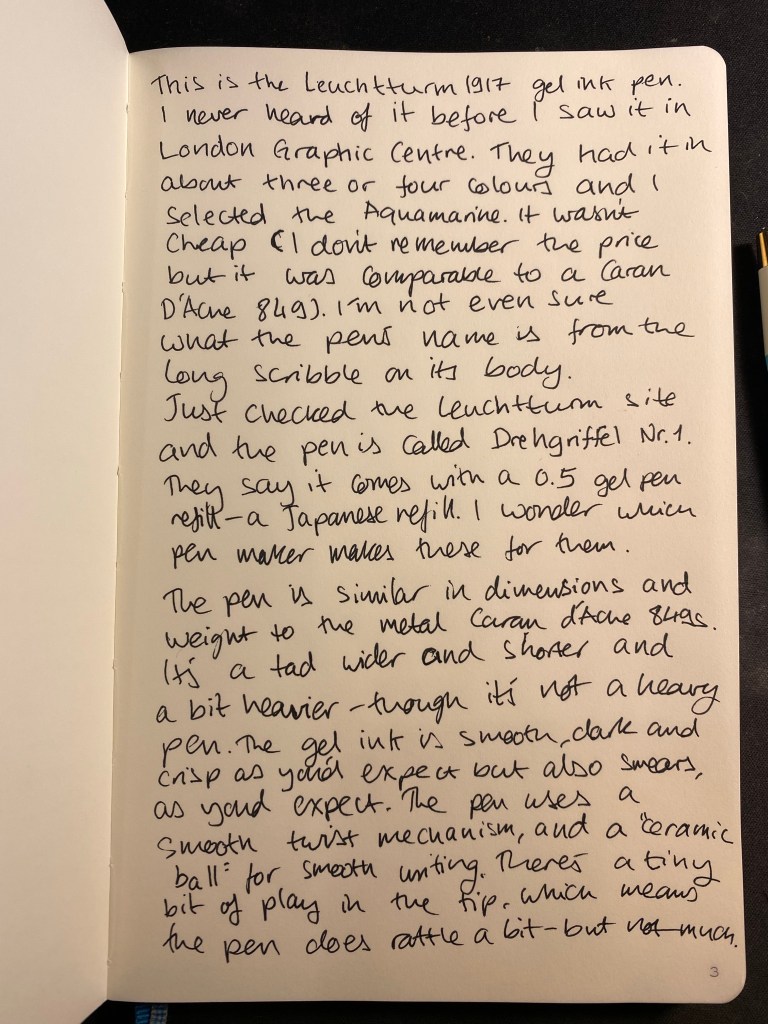 This is the Leuchtturm 1917 gel ink pen.
I never heard of it before I saw it in
London Graphic Centre. They had it in
about three or four colours and I
selected the Aquamarine. It wasn't
cheap (I don't remember the price
but it was comparable to a Caran
D'Ache 849). I'm not even sure
what the pen's name is from the
long scribble on its body.
Just checked the Leuchtturm site
and the pen is called Drehgriffel Nr.1.
They say it comes with a 0.5 gel pen
refill - a Japanese refill. I wonder which
pen maker makes these for them.
The pen is similar in dimensions and
weight to the metal Caran d'Ache 849s.
It's a tad wider and shorter and
a bit heavier - though it's not a heavy
pen. The gel ink is smooth, dark and
crisp as you'd expect but also smears,
as you'd expect. The pen uses a
smooth twist mechanism, and a "ceramic
ball" for smooth writing. There's a tiny
bit of play in the tip, which means
the pen does rattle a bit - but not much.
3